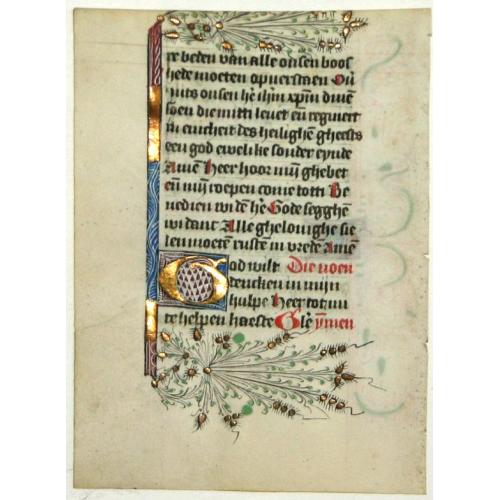 re beden van alle onsen boos
hede moeten opuerstaen Ou̅
mits onsen he̅ ih̅m xpm̅ dine̅
soen die mitti leuet en̅ regniert
in eenheit des heilighe̅ gheests
een god ewelike sonder eynde
Ame̅ Heer hoor mijn̅ ghebet
en̅ mijn̅ roepen come totti Be
nedien wi de̅ he̅ Gode segghe̅
wi danc Alle ghelouighe sie
len moete̅ ruste̅ in vrede Ame̅
God wilt Die noen
dencken in mijn
hulpe Heer tot mi
te helpen haeste Gl̅e ymen